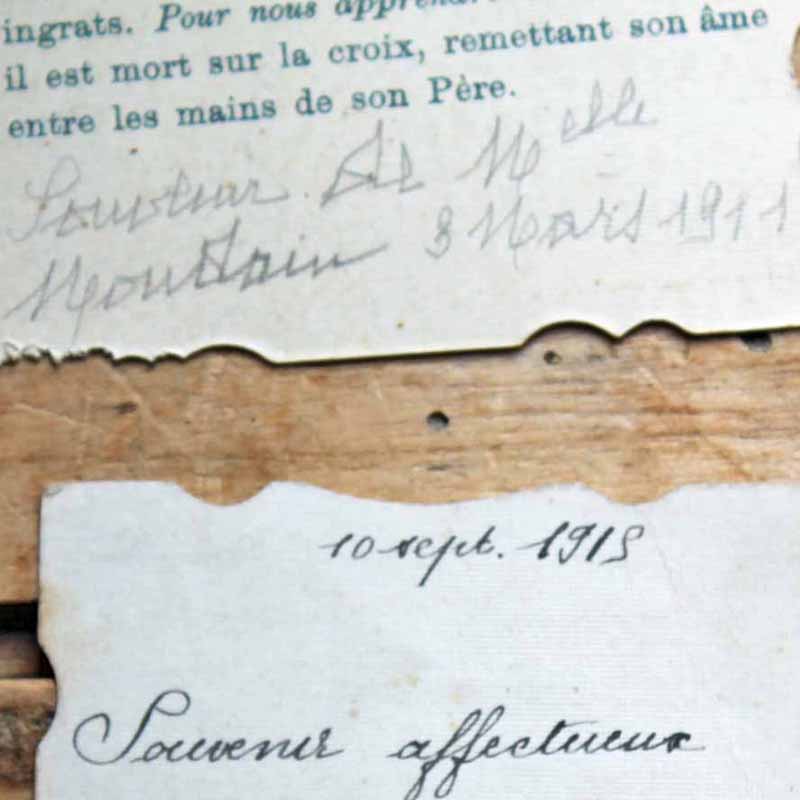 ingrats. Pour nous apprendre
il est mort sur la croix, remettant son âme
entre les mains de son Père.
Souvenir de Melle
Mouttain 3 Mars 1911
10 sept. 1915
Souvenir affectueux